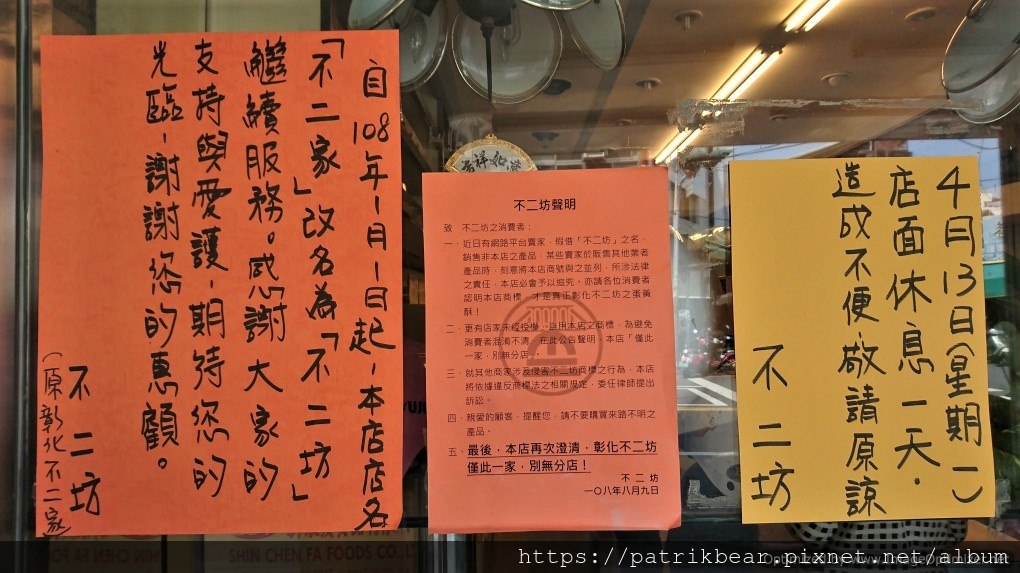 自108年1月1日起,本店店名
「不二家」改名為「不二坊」
繼續服務。感謝大家的
支持與愛護,期待您的
光臨,謝謝您的惠顧。
不二坊
(原彰化不二家)
吉祥如意
不二坊聲明
致 不二坊之消費者:
一、近日有網路平台賣家,假借「不二坊」之名,
銷售非本店之產品,某些賣家於販售其他業者
產品時,刻意將本店商號與之並列,所涉法律
之責任,本店必會予以追究,亦請各位消費者
認明本店商標,才是真正彰化不二坊之蛋黃
酥!
二、更有店家未經授權,盜用本店之商標,為避免
消費者混淆不清,在此公告聲明,本店「僅此
一家,別無分店」。
三、就其他商家涉及侵害不二坊商標之行為,本店
將依據違反商標法之相關規定,委任律師提出
訴訟。
四、親愛的顧客,提醒您,請不要購買來路不明之
產品。
五、最後,本店再次澄清,彰化不二坊
僅此一家,別無分店!
不二坊
一〇八年八月九日
4月13日(星期一)
店面休息一天.
造成不便,敬請原諒
不二坊
SHIN CHEN FA FOODS CO.,
https://patrikbear.pixnet.net/album